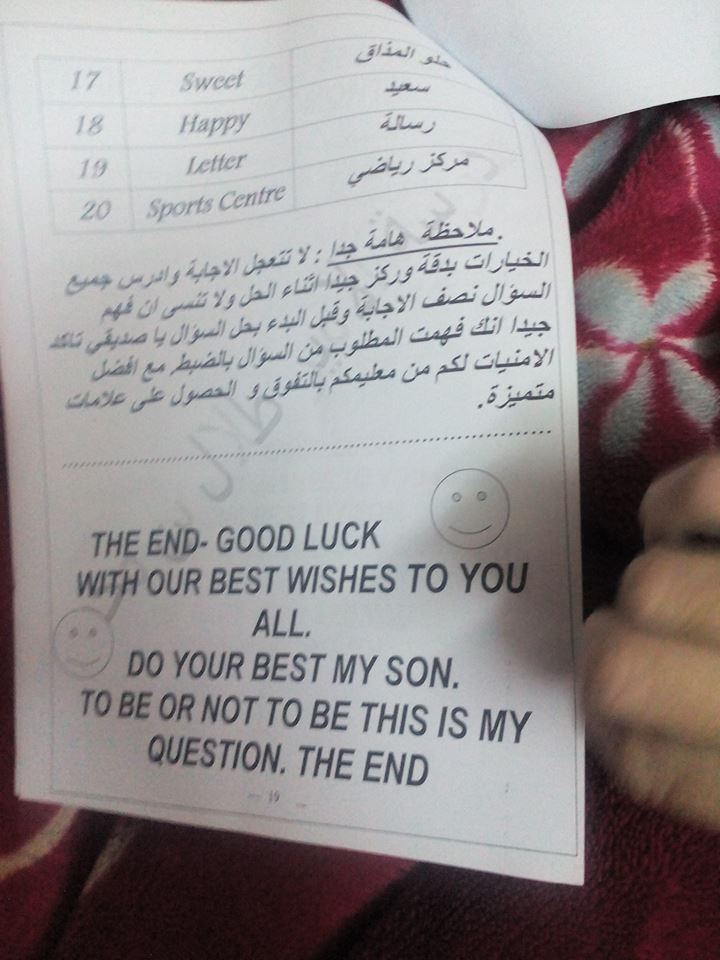 17 Sweet حلو المذاق
18 Happy سعيد
19 Letter رسالة
20 Sports Centre مركز رياضي
ملاحظة هامة جدا : لا تتعجل الاجابة وادرس جميع
الخيارات بدقة وركز جيدا اثناء الحل ولا تنسى ان فهم
السؤال نصف الاجابة وقبل البدء بحل السؤال يا صديقي تاكد
جيدا انك فهمت المطلوب من السؤال بالضبط مع افضل
الامنيات لكم من معليمكم بالتفوق و الحصول على علامات
متميزة.
THE END- GOOD LUCK
WITH OUR BEST WISHES TO YOU
ALL.
DO YOUR BEST MY SON.
TO BE OR NOT TO BE THIS IS MY
QUESTION. THE END
19